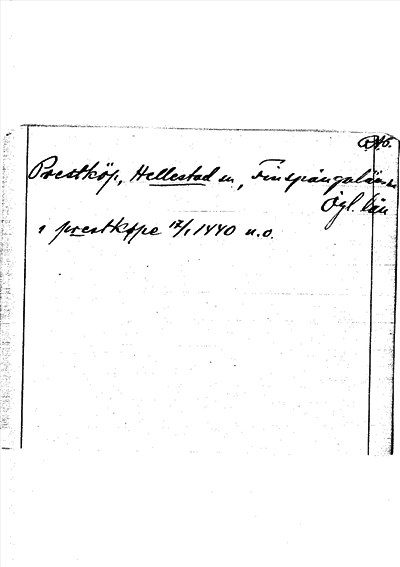 Prestköp, Hellestad sn, Finspångalän
Ögl. län
i prestköpe 17/1 1440 u.o.